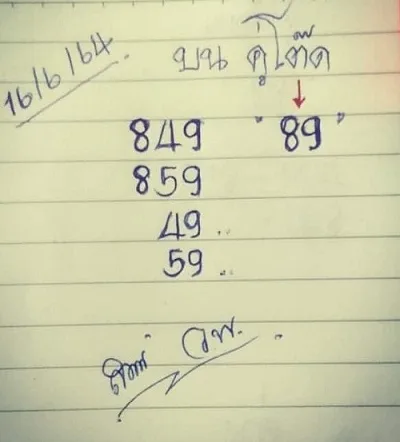 16/6/64.
บน คู่โต๊ด
849 "89"
859
49..
59..